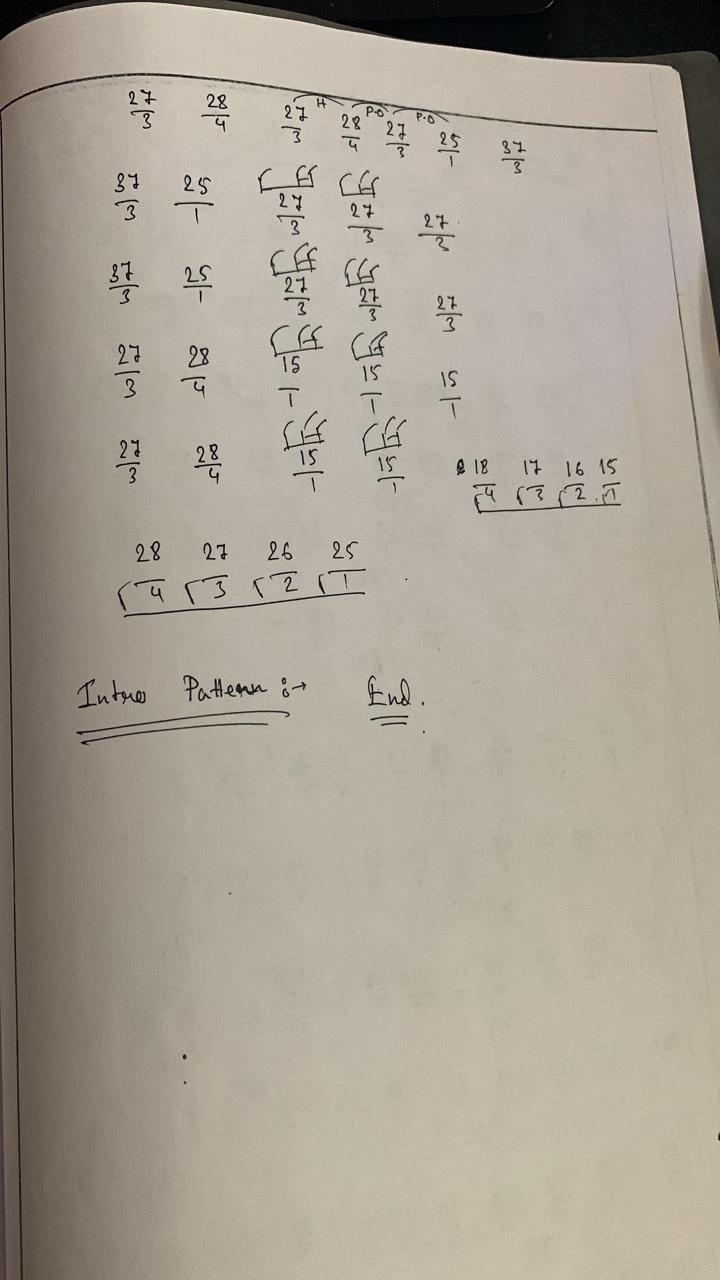 27/3 28/4 27/3 H 28/4 P.O 27/3 P.O 25/1 37/3
37/3 25/1 27/3 27/3 27/3
37/3 25/1 27/3 27/3 27/3
27/3 28/4 15/1 15/1 15/1
27/3 28/4 15/1 15/1 18/4 17/3 16/2 15/1
28/4 27/3 26/2 25/1
Intro Pattern :→ End.